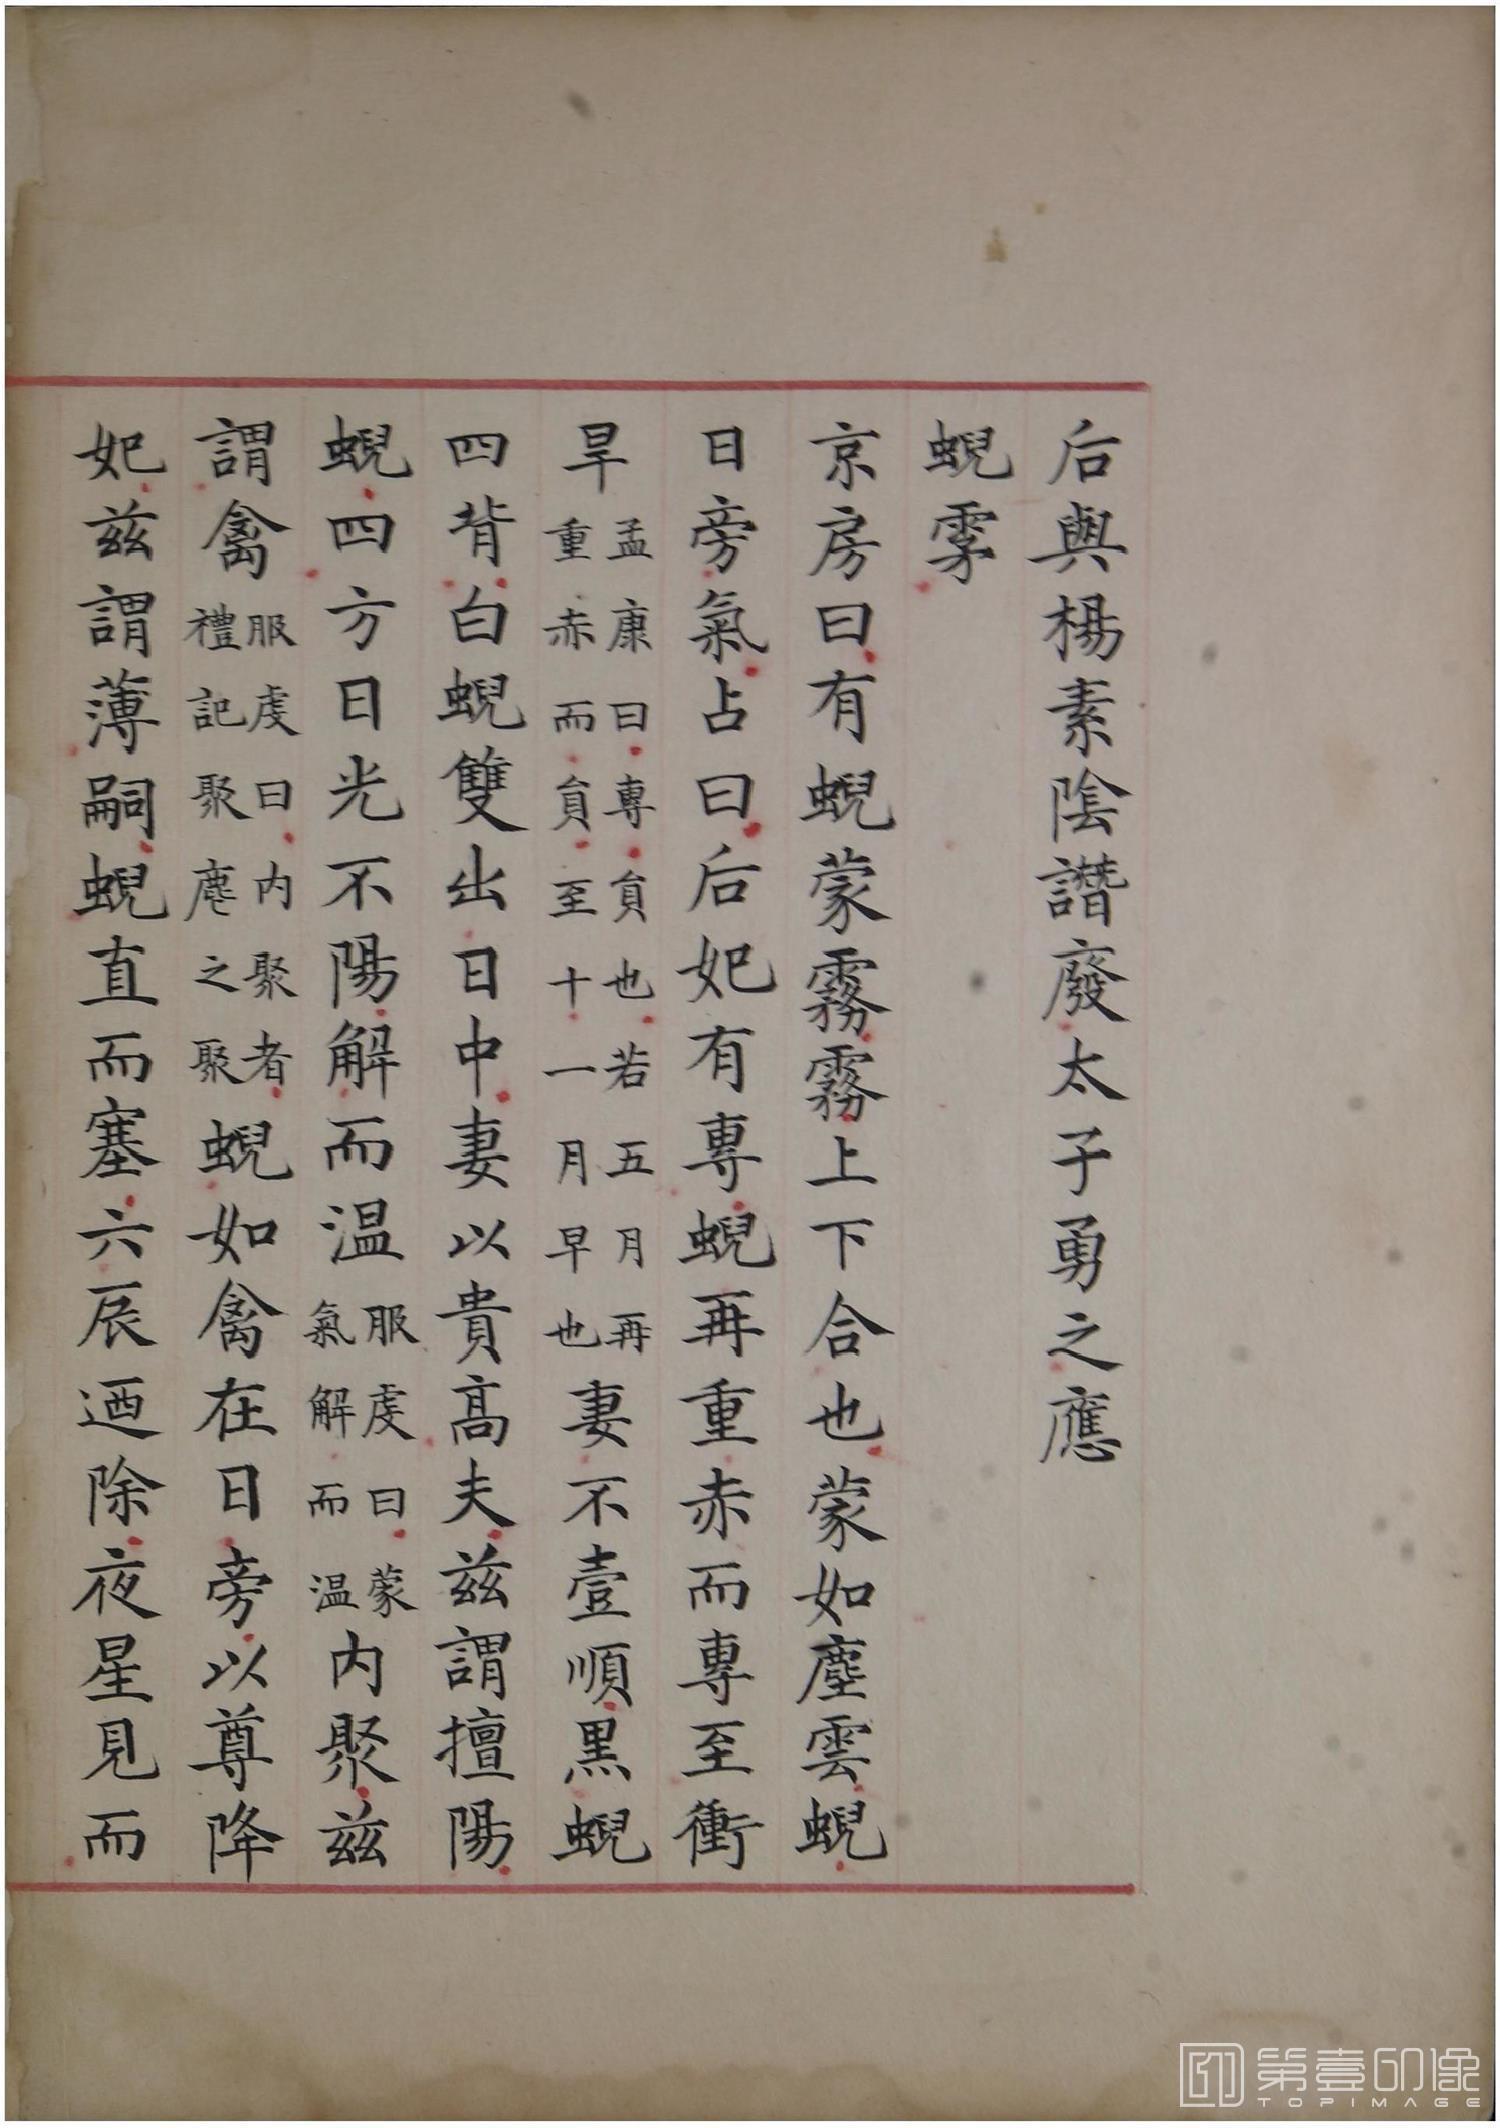 后與楊素陰譖廢太子勇之應
蜺雺
京房曰有蜺蒙霧霧上下合也蒙如塵雲蜺
日旁氣占曰后妃有專蜺再重赤而專至衝
旱孟康曰專貟也若五月再重赤而貟至十一月早也妻不壹順黑蜺
四背白蜺雙出日中妻以貴高夫茲謂擅陽
蜺四方日光不陽解而温服虔曰蒙氣解而温内聚茲
謂禽服虔曰内聚者禮記聚麀之聚蜺如禽在日旁以尊降
妃茲謂薄嗣蜺直而塞六辰迺除夜星見而
第壹印像
TOPIMAGE